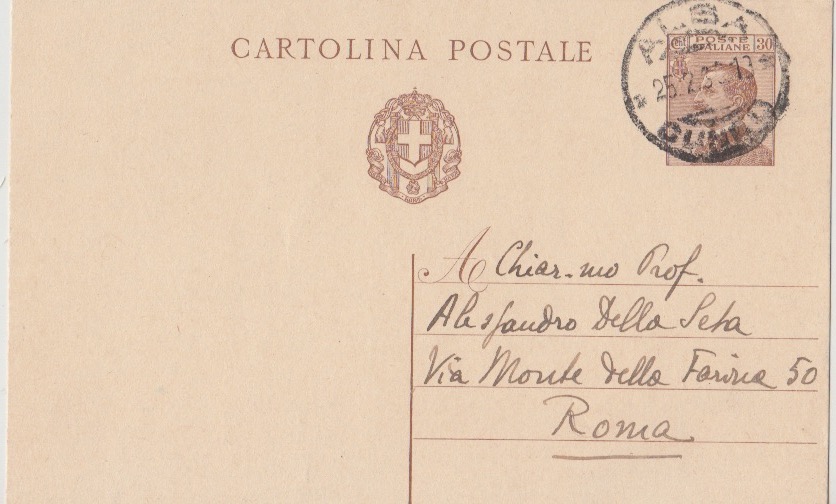 CARTOLINA POSTALE
POSTE
ITALIANE
30
ALBA
CUNEO
A Chiar-mo Prof.
Alessandro Della Seta
Via Monte della Farina 50
Roma